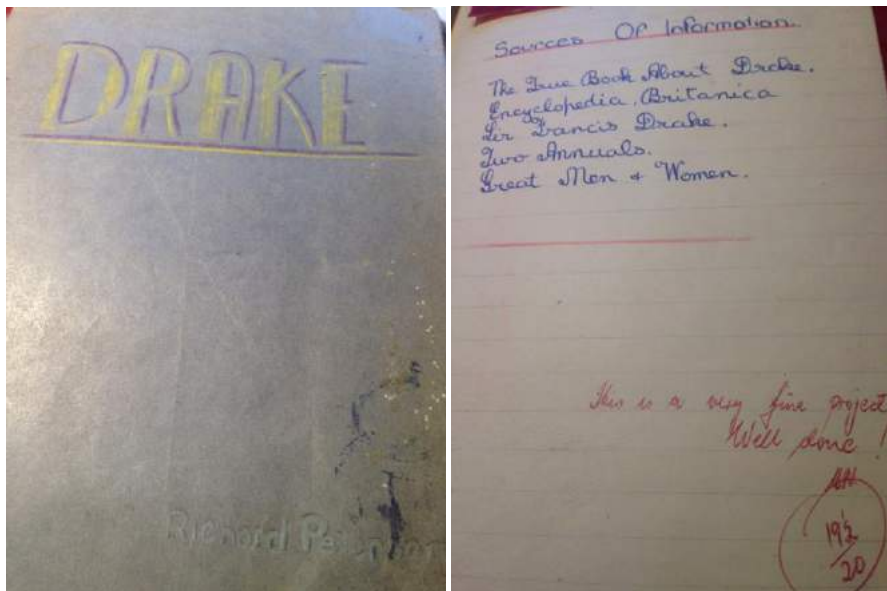 DRAKE
Richard
Sources Of Information.
The True Book About Drake.
Encyclopedia Britanica
Sir Francis Drake.
Two Annuals.
Great Men + Women.
This is a very fine project
Well done !
19½
20